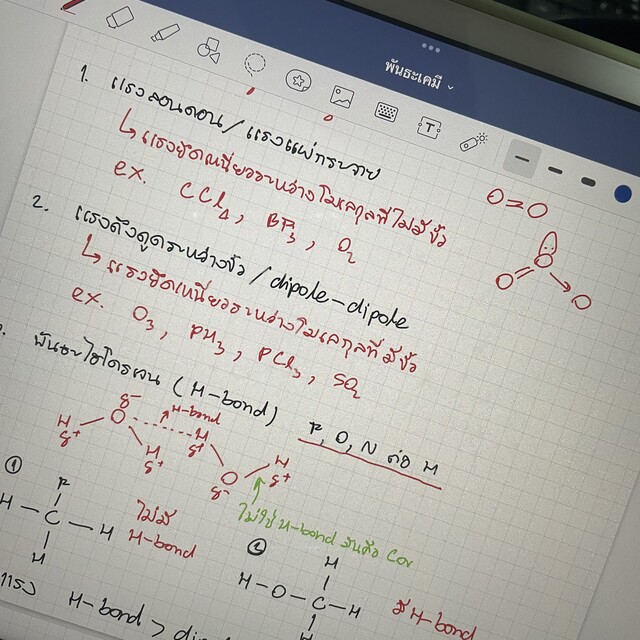 พันธะเคมี
1. แรงลอนดอน / แรงแผ่กระจาย
↳ แรงยึดเหนี่ยวระหว่างโมเลกุลที่ไม่มีขั้ว
ex. CCl₄, BF₃, O₂
O=O
O
O O
2. แรงดึงดูดระหว่างขั้ว / dipole-dipole
↳ แรงยึดเหนี่ยวระหว่างโมเลกุลที่มีขั้ว
ex. O₃, PH₃, PCl₃, SO₂
พันธะไฮโดรเจน (H-bond) F, O, N ต่อ H
δ⁻ H-bond
H O H H
δ⁺ δ⁺
H O
δ⁺ δ⁻ δ⁺
ไม่ใช่ H-bond มันคือ Cov
①
F
H - C - H
H
ไม่มี
H-bond
②
H
H - O - C - H
H
มี H-bond
แรง H-bond > dip